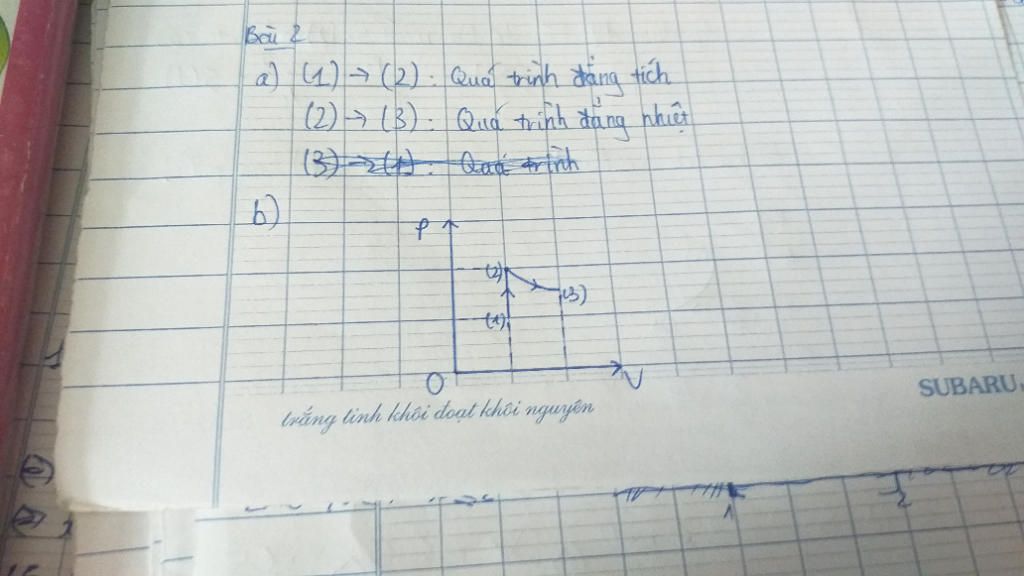 Bài 2
a) (1) → (2) : Quá trình đẳng tích
(2) → (3) : Quá trình đẳng nhiệt
(3) → (1) : Quá trình
b)
P
(2)
(3)
(1)
O
V
trắng tinh khôi đoạt khôi nguyên
SUBARU
1
2